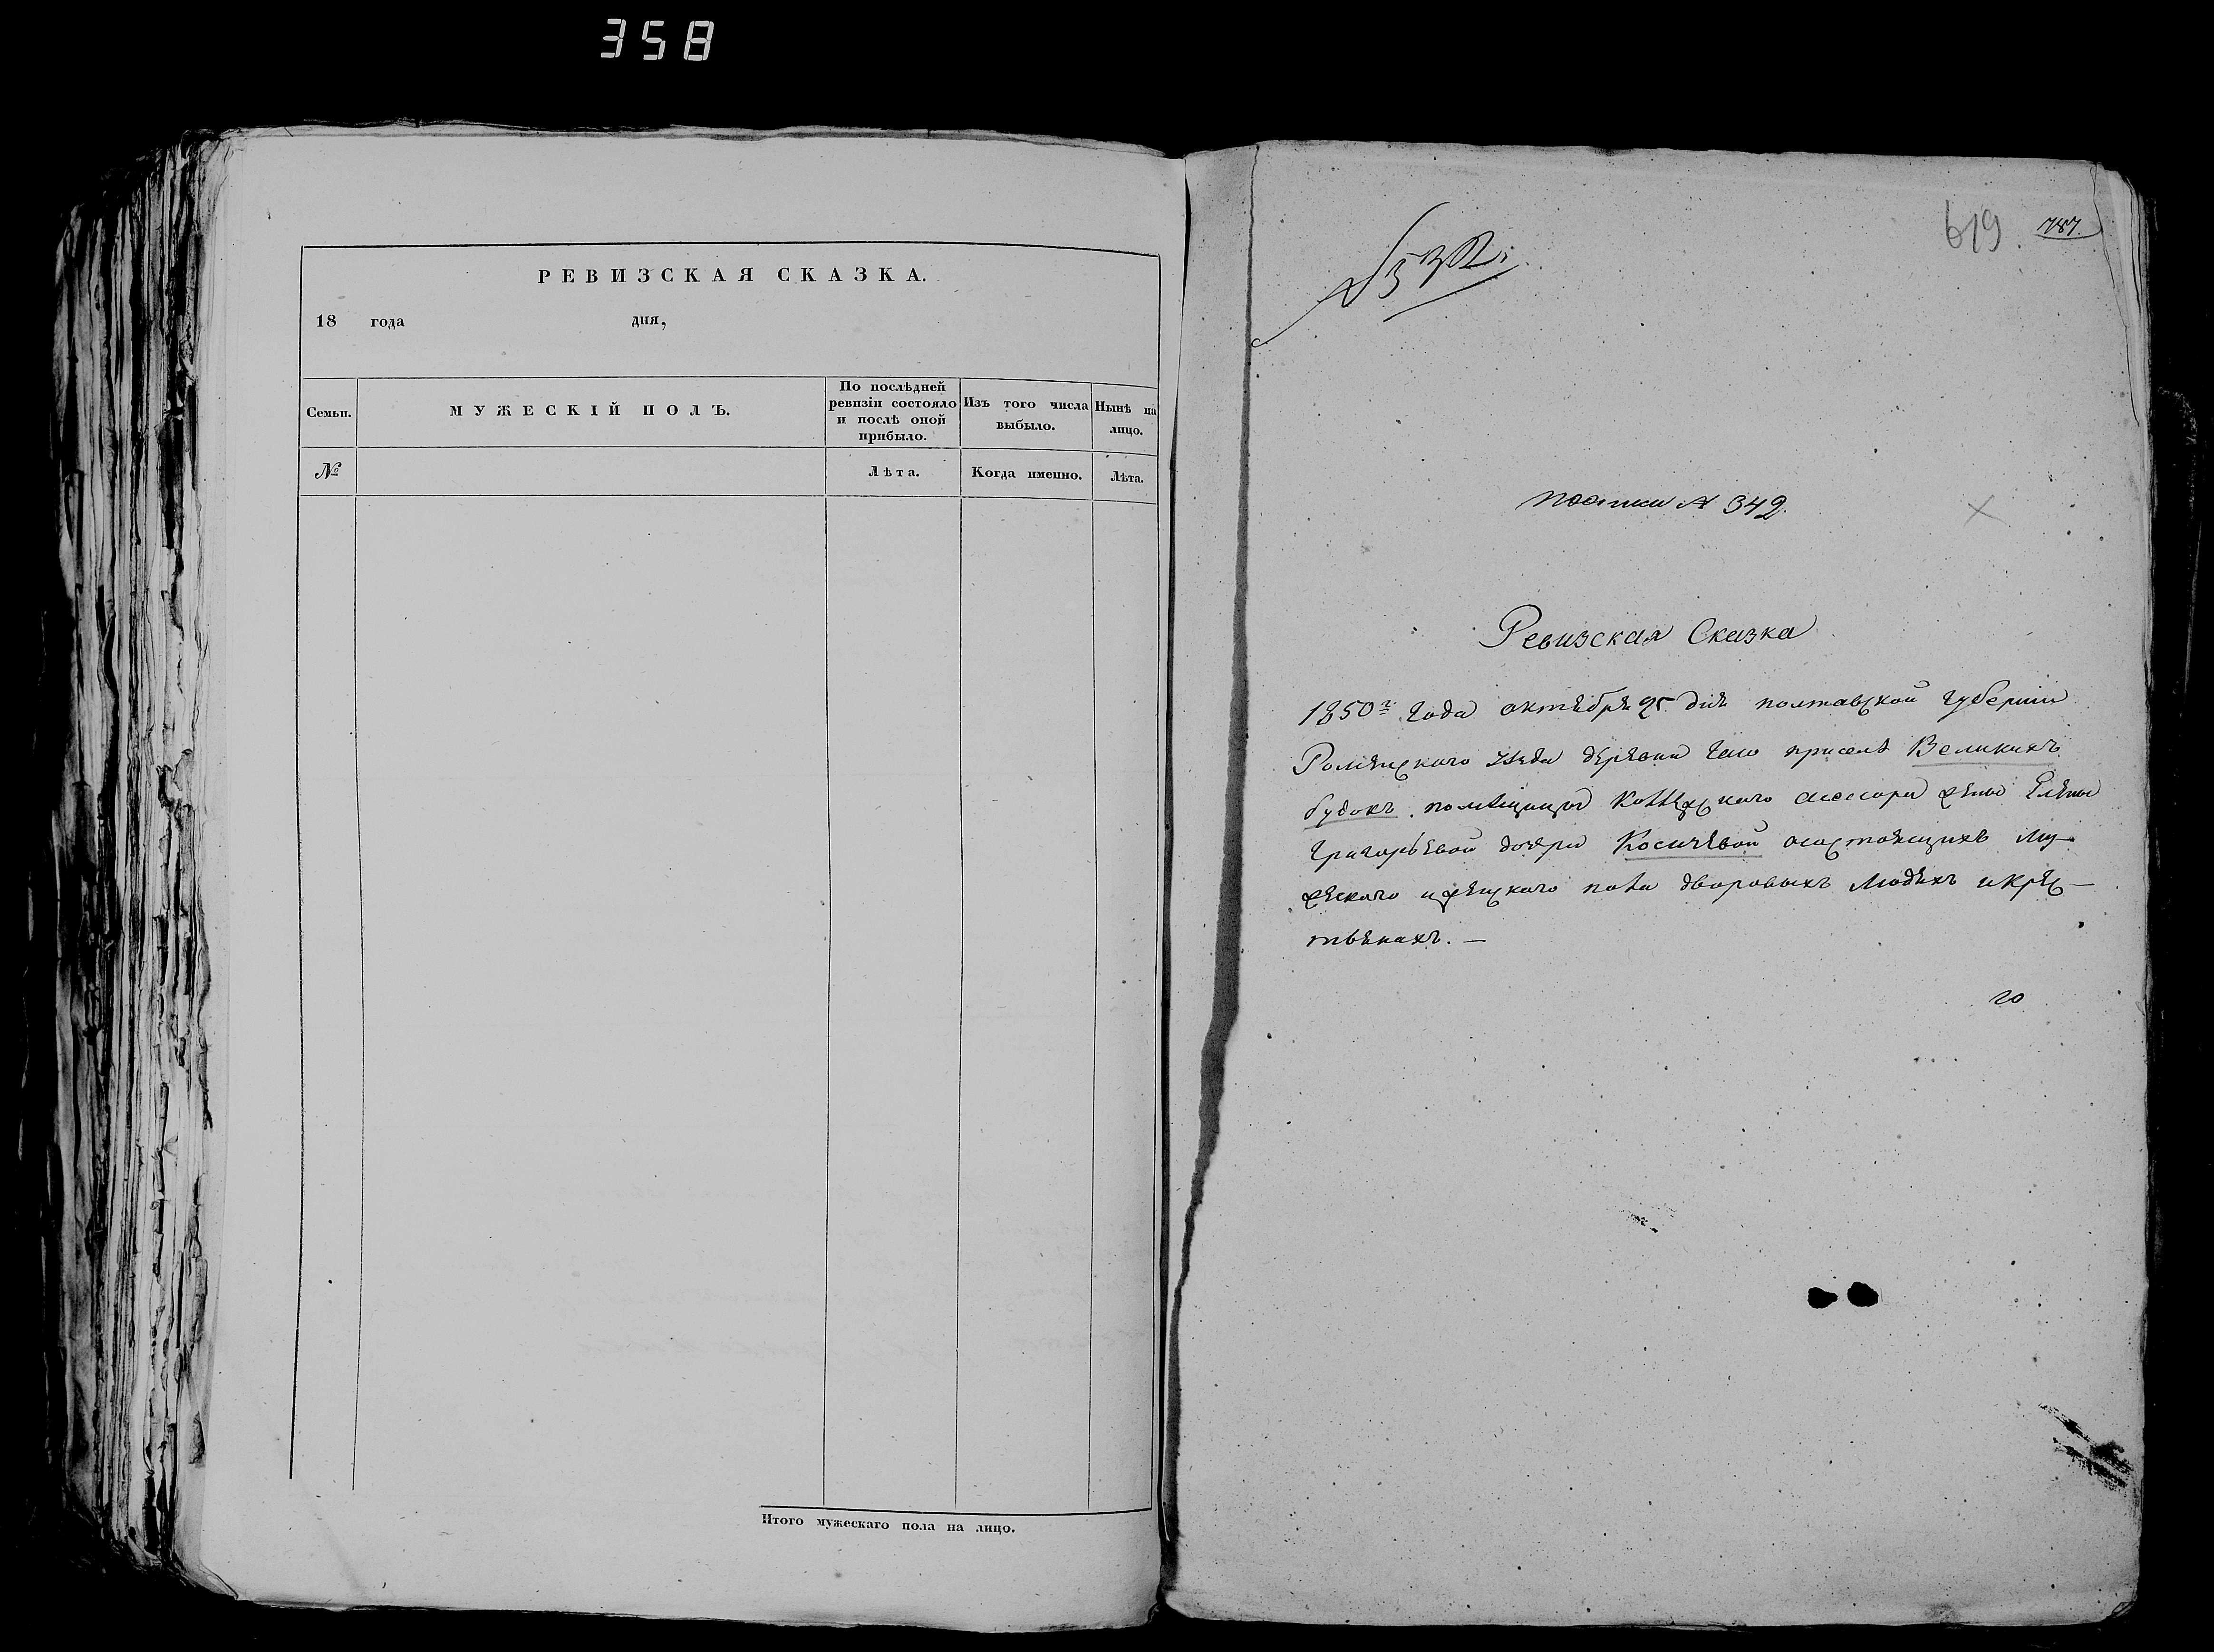 358
РЕВИЗСКАЯ СКАЗКА.
18 года дня,
Семьи.
МУЖЕСКІЙ ПОЛЪ.
По послѣдней ревизіи состояло и послѣ оной прибыло.
Изъ того числа выбыло.
Нынѣ на лицо.
№
Лѣта.
Когда именно.
Лѣта.
Итого мужескаго пола на лицо.
619. 787.
№ 342
Ревизская Сказка
1850го года октября 25 дня полтавской губернии
Роменского уезда деревни что приселѣ Великихъ
будокъ. помещицы Коллежского асессора жены Елены
Григорьевой дочери Косичевой осостоящихъ му-
жеского иженского пола дворовыхъ людехъ икрес-
тьянахъ. —
го